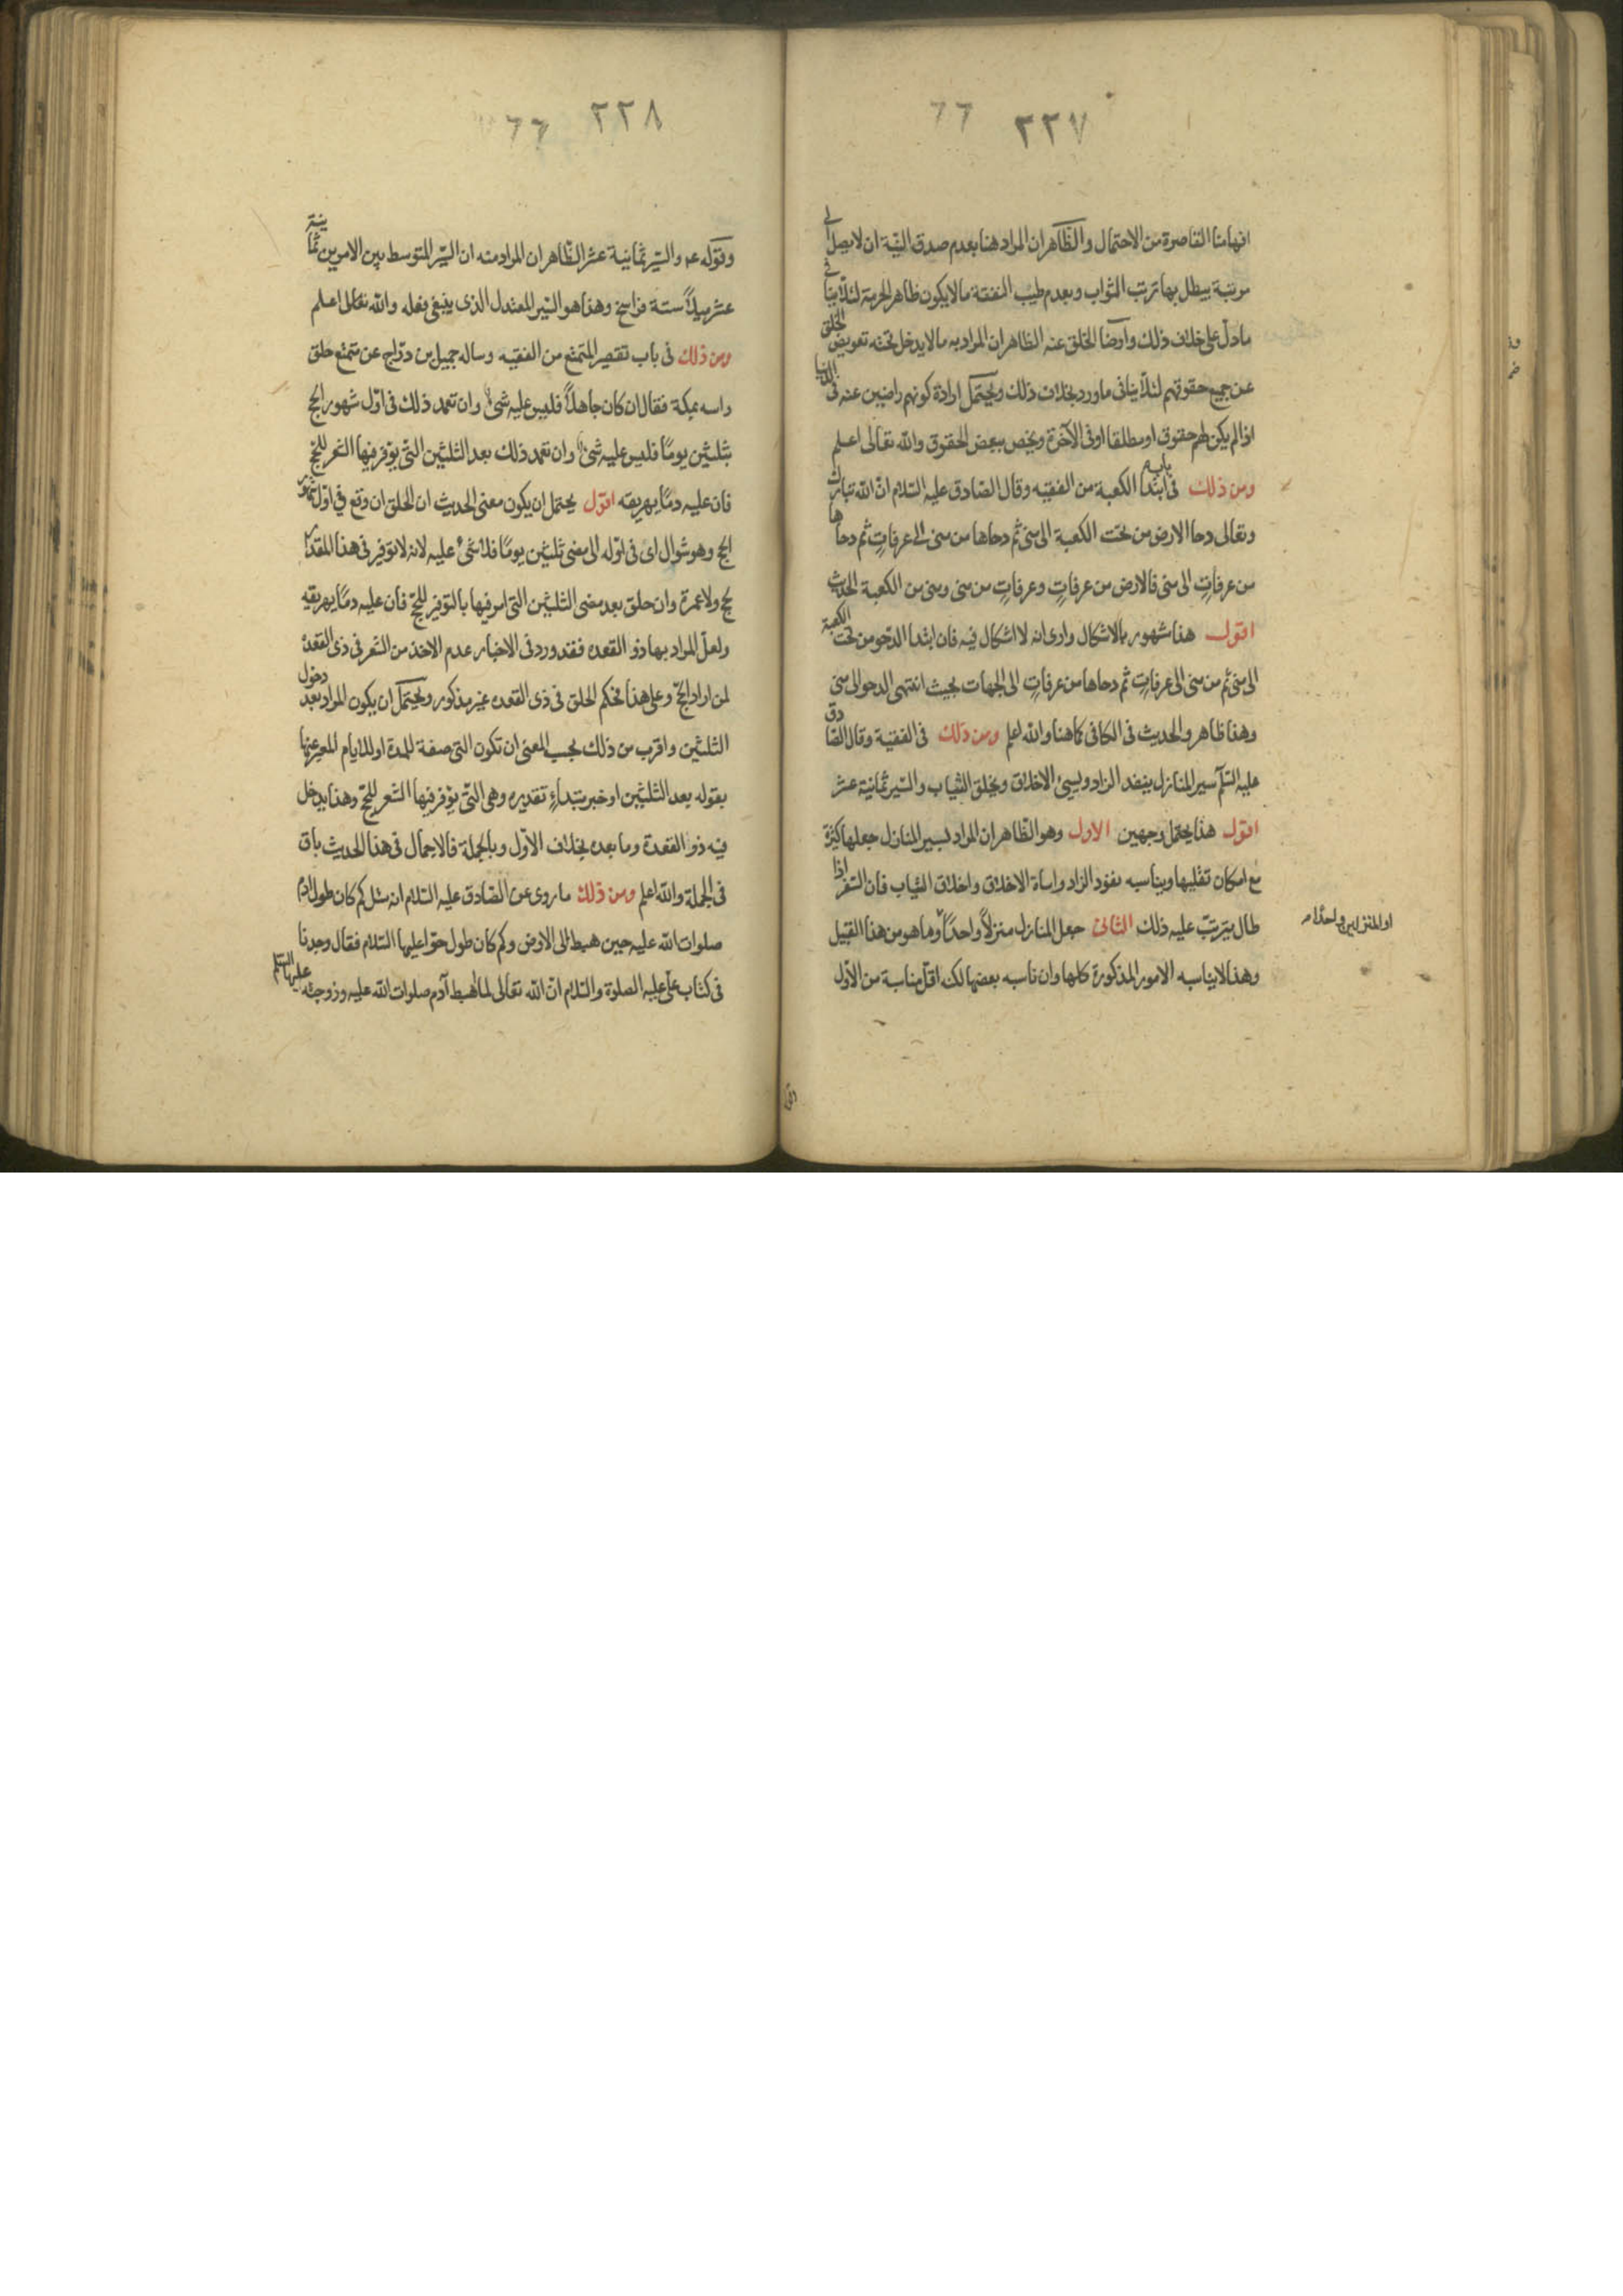 ٢٢٧ ٦٦
افهامنا القاصرة من الاحتمال والظاهر ان المراد هنا بعدم صدق النية ان لا يصل الى
مرتبة يبطل بها ترتب الثواب وبعدم طيب النفقة ما لا يكون ظاهر الحرمة لئلا ينافى
ما دل على خلاف ذلك وارضا الخلق عنه الظاهر ان المراد به ما لا يدخل تحته تعويض الخلق
عن جميع حقوقهم لئلا ينافى ما ورد بخلاف ذلك ويحتمل ارادة كونهم راضين عنه فى الدنيا
اذا لم يكن لهم حقوق او مطلقا او فى الآخرة ويخص ببعض الحقوق والله تعالى اعلم
ومن ذلك فى باب ابتدا الكعبة من الفقيه وقال الصادق عليه السلام ان الله تبارك
وتعالى دحا الارض من تحت الكعبة الى منى ثم دحاها من منى الى عرفات ثم دحاها
من عرفات الى منى فالارض من عرفات وعرفات من منى ومنى من الكعبة الحديث
اقول هذا مشهور بالاشكال وارى انه لا اشكال فيه فان ابتدا الدحو من تحت الكعبة
الى منى ثم من منى الى عرفات ثم دحاها من عرفات الى الجهات بحيث انتهى الدحو الى منى
وهذا ظاهر والحديث فى الكافى كما هنا والله اعلم ومن ذلك فى الفقيه وقال الصادق
عليه السلم سير المنازل ينفد الزاد ويسيئ الاخلاق ويخلق الثياب والسير ثمانية عشر
اقول هذا يحتمل وجهين الاول وهو الظاهر ان المراد بسير المنازل جعلها كثيرة
مع امكان تقليلها ويناسبه نفود الزاد واساءة الاخلاق واخلاق الثياب فان السفر اذا
طال يترتب عليه ذلك الثانى جعل المنازل منزلاً واحداً وما هو من هذا القبيل
او المنزلين واحدا م
وهذا لا يناسبه الامور المذكورة كلها وان ناسبه بعضها لكنه اقل مناسبة من الاول
٢٢٨ ٦٦
وقوله عم والسير ثمانية عشر الظاهر ان المراد منه ان السير المتوسط بين الامرين ثمانية
عشر ميلاً ستة فراسخ وهذا هو السير المعتدل الذى ينبغى فعله والله تعالى اعلم
ومن ذلك فى باب تقصير المتمتع من الفقيه وساله جميل بن دراج عن متمتع حلق
راسه بمكة فقال ان كان جاهلاً فليس عليه شئ وان تعمد ذلك فى اول شهور الحج
بثلثين يوماً فليس عليه شئ وان تعمد ذلك بعد الثلثين التى يوفر فيها الشعر للحج
فان عليه دماً يهريقه اقول يحتمل ان يكون معنى الحديث ان الحلق ان وقع فى اول شهور
الحج وهو شوال اى فى اوله الى مضى ثلثين يوماً فلا شئ عليه لانه لا توفير فى هذا المقدار
لحج ولا عمرة وان حلق بعد مضى الثلثين التى امر فيها بالتوفير للحج فان عليه دماً يهريقه
ولعل المراد بها ذو القعده فقد ورد فى الاخبار عدم الاخذ من الشعر فى ذى القعدة
لمن اراد الحج وعلى هذا فحكم الحلق فى ذى القعده غير مذكور ويحتمل ان يكون المراد بعد دخول
الثلثين واقرب من ذلك بحسب المعنى ان تكون التى صفة للمدة او للايام المعبر عنها
بقوله بعد الثلثين او خبر مبتداءٍ تقديره وهى التى يوفر فيها الشعر للحج وهذا يدخل
فيه ذو القعدة وما بعده بخلاف الاول وبالجملة فالاجمال فى هذا الحديث باق
فى الجملة والله اعلم ومن ذلك ما روى عن الصادق عليه السلام انه سئل كم كان طول ادم
صلوات الله عليه حين هبط الى الارض وكم كان طول حوا عليها السلام فقال وجدنا
فى كتاب على عليه الصلوة والسلام ان الله تعالى لما اهبط آدم صلوات الله عليه وزوجته عليهما السلم